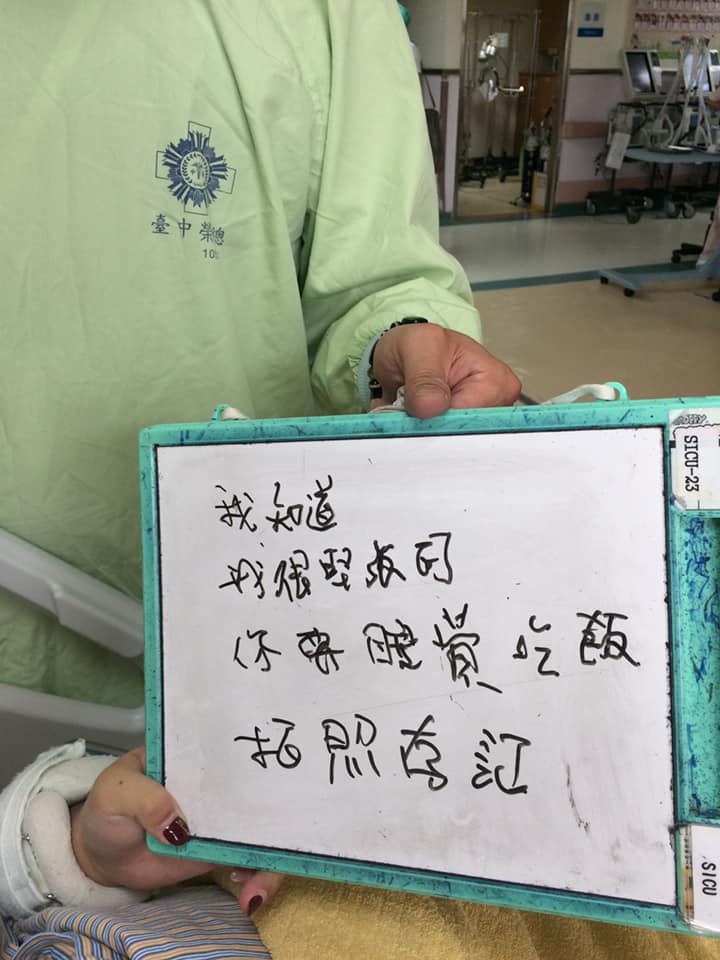 臺中榮總
SICU-23
我知道
我很堅強的
你要睡覺吃飯
拍照存
SICU